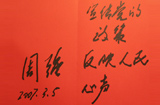 宣传党的
政策
反映人民
心声
周强
2007.3.5